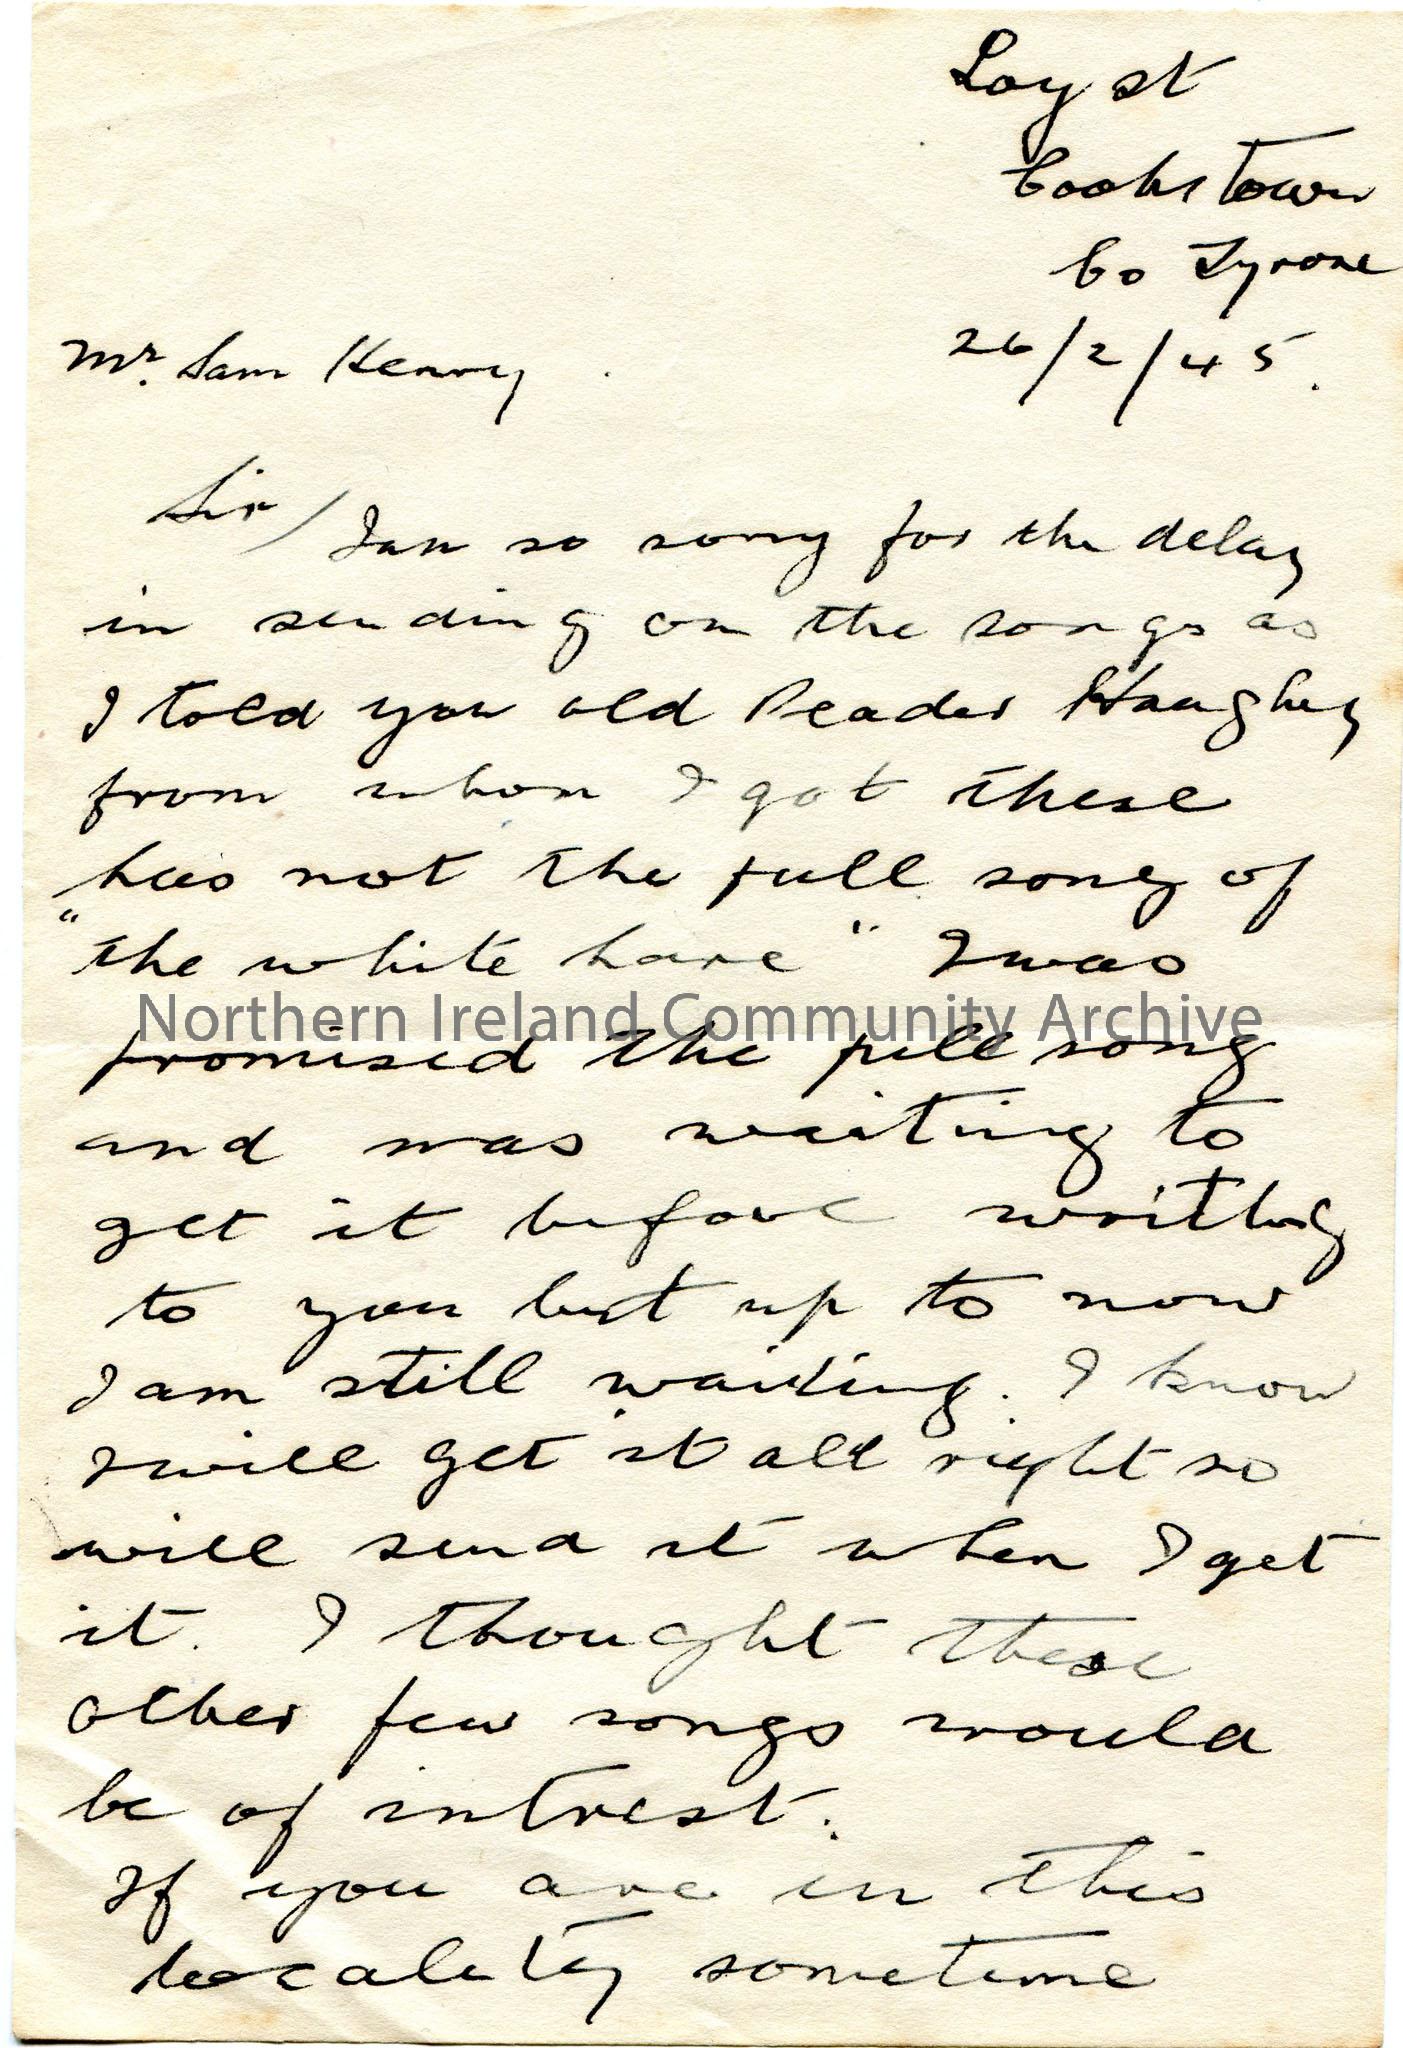 Loy st
Cookstown
Co Tyrone
26/2/45.
Mr. Sam Henry
Sir/ I am so sorry for the delay
in sending on the songs as
I told you old Peader Haughey
from whom I got these
has not the full song of
"the white hare" I was
Northern Ireland Community Archive
promised the full song
and was waiting to
get it before writing
to you but up to now
I am still waiting. I know
I will get it all right so
will send it when I get
it. I thought these
other few songs would
be of intrest.
If you are in this
locality sometime